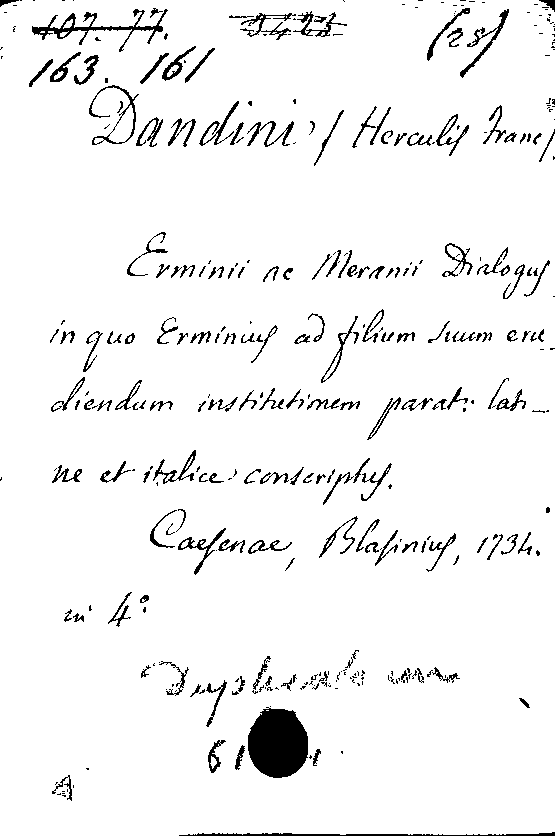 107. 77. 3423 (28)
163. 161
Dandini / Herculis Franc /
Erminii ac Meranii Dialogus
in quo Erminius ad filium suum eru_
diendum institutionem parat: lati_
ne et italice conscriptus.
Caesenae, Blasinius, 1734.
in 4°
61